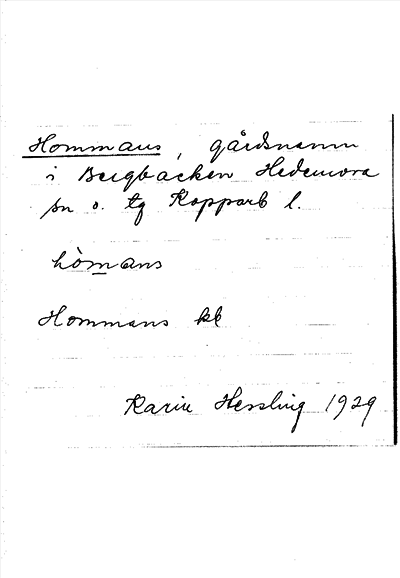 Hommans, gårdsnamn
i Bergbacken Hedemora
sn o. tg Kopparb l.
hòmans
Hommans kk
Karin Hessling 1929